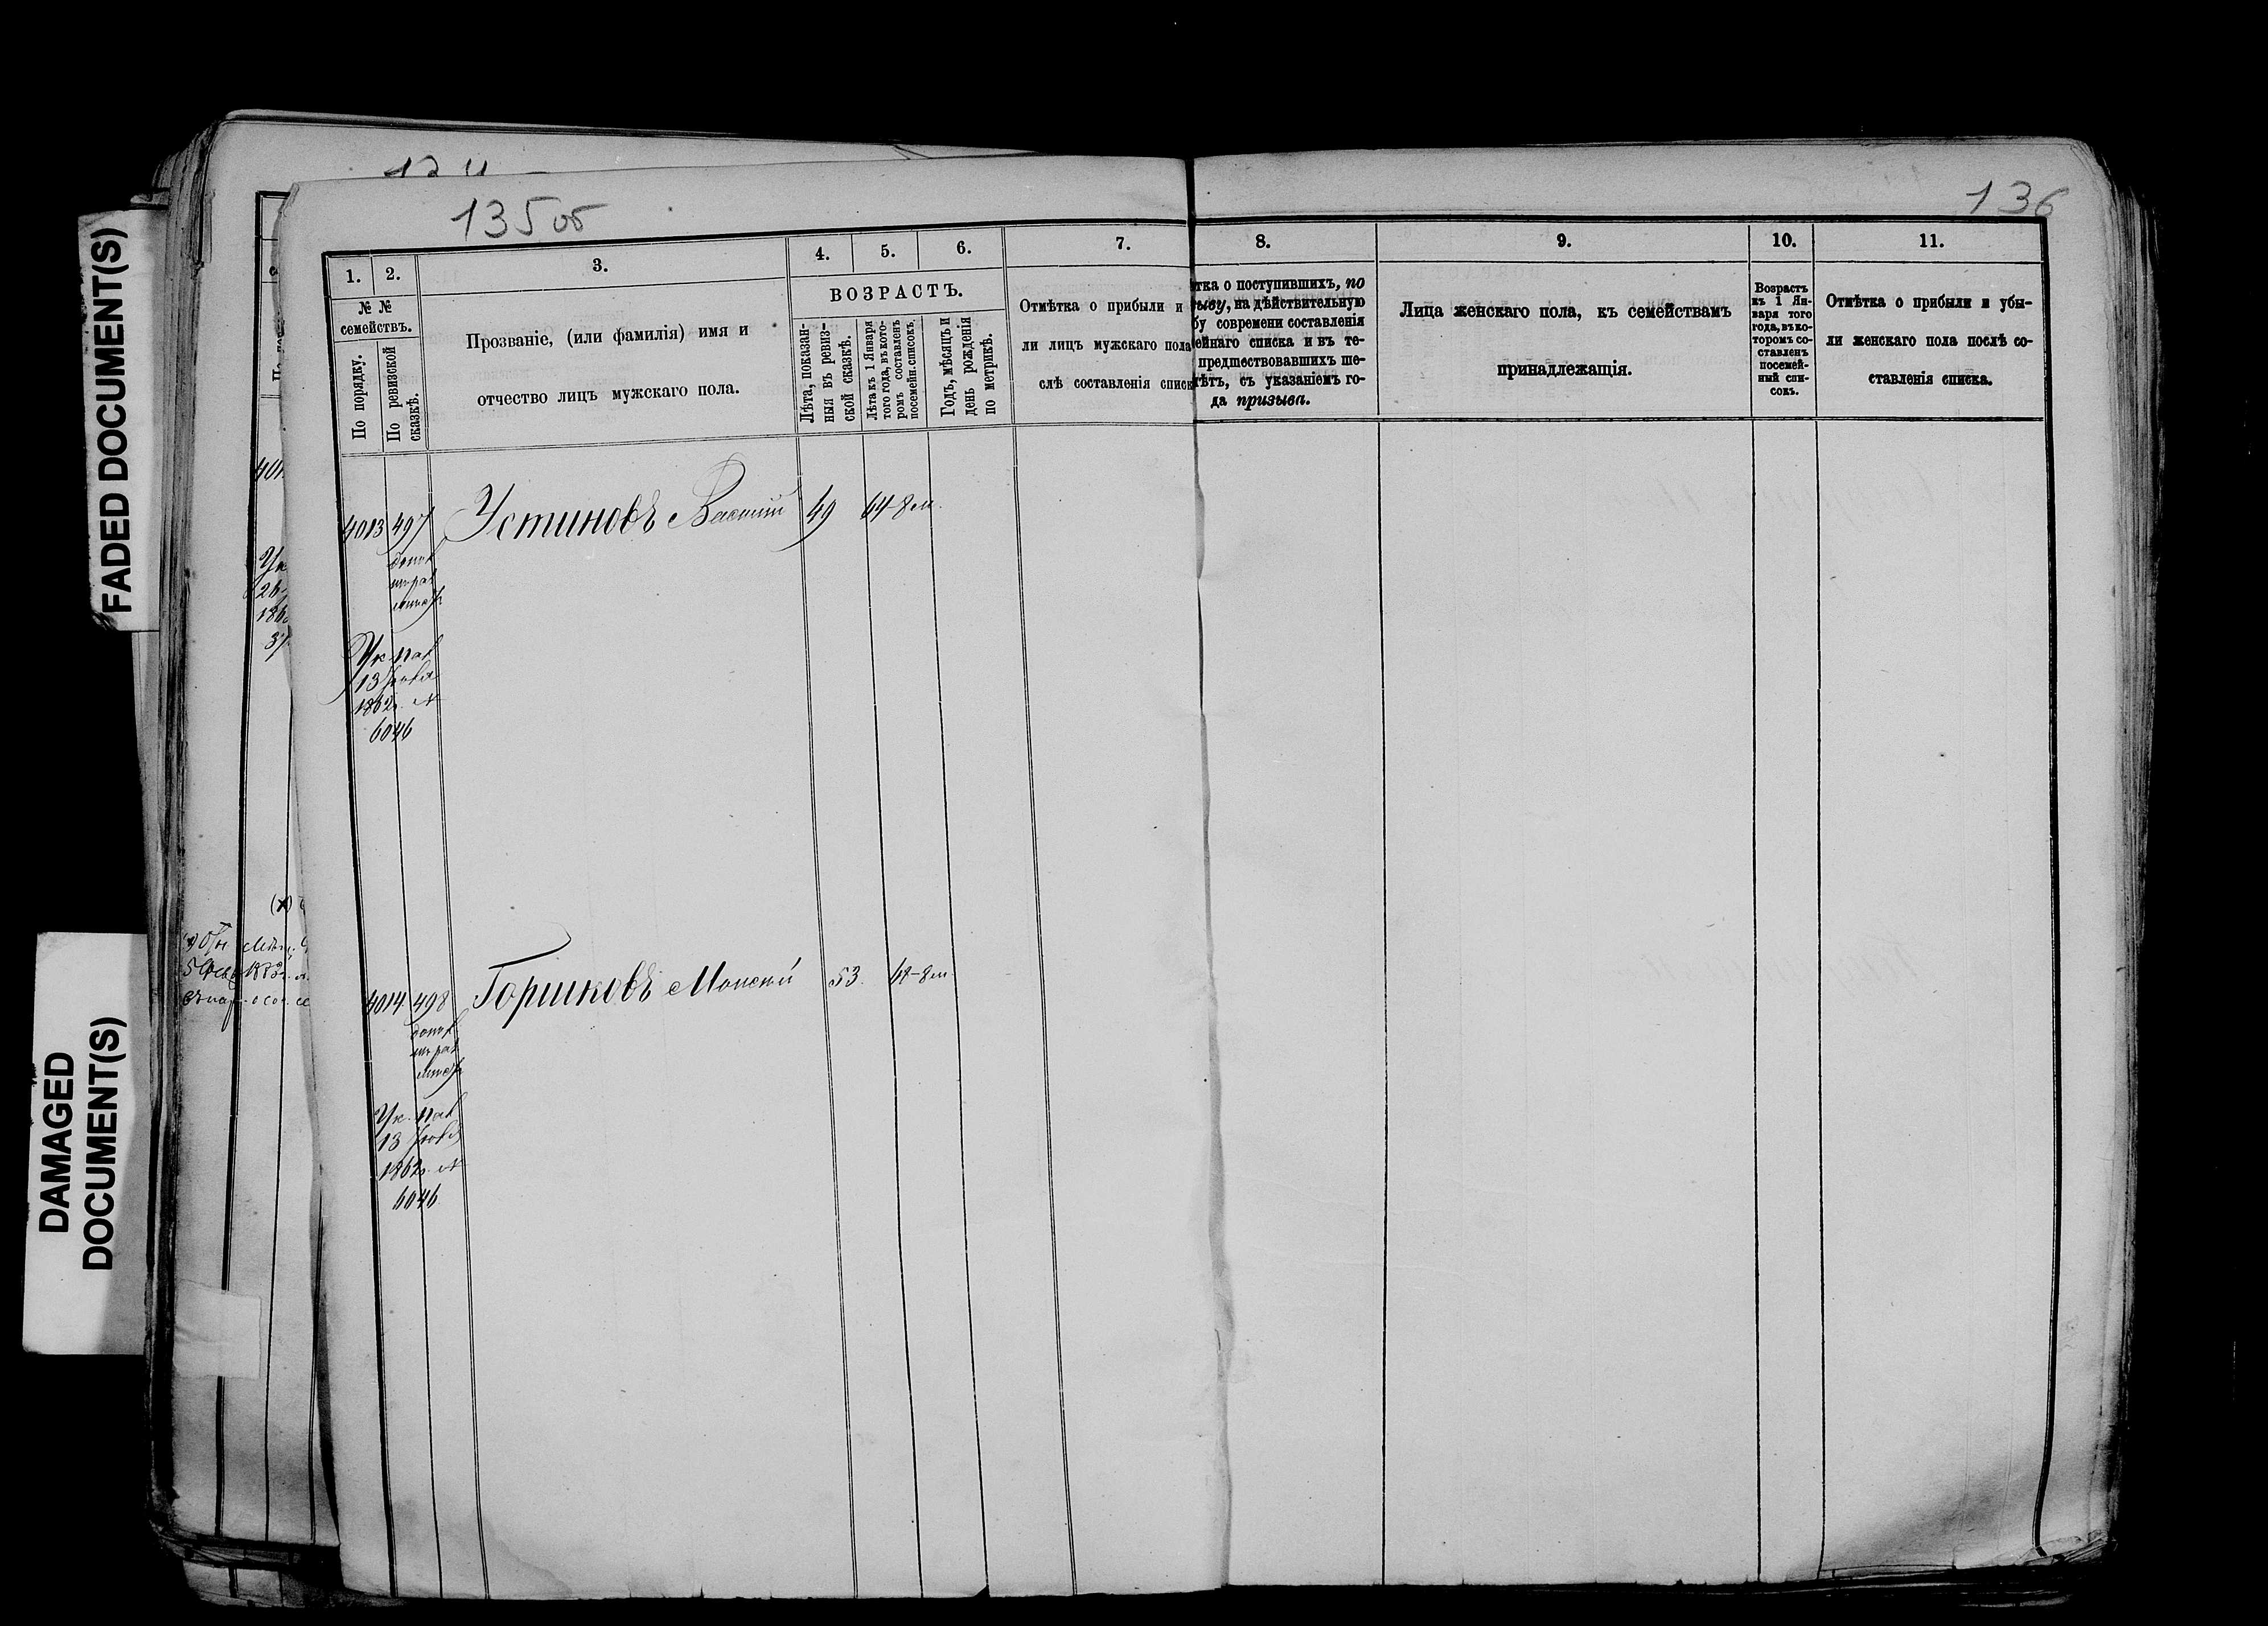 FADED DOCUMENT(S)
DAMAGED
DOCUMENT(S)
135 об
136
1.
2.
3.
4.
5.
6.
7.
8.
9.
10.
11.
№ №
семействъ.
По порядку.
По ревизской
сказкѣ.
Прозваніе, (или фамилія) имя и
отчество лицъ мужскаго пола.
ВОЗРАСТЪ.
Лѣта, показан-
ныя въ ревиз-
ской сказкѣ.
Лѣта къ 1 Января
того года, въ кото-
ромъ составленъ
посемейн. списокъ.
Годъ, мѣсяцъ и
день рожденія
по метрикѣ.
Отмѣтка о прибыли и
ли лицъ мужскаго пола
слѣ составленія списк
тка о поступившихъ, по
ыву, на дѣйствительную
бу современи составленія
ейнаго списка и въ те-
предшествовавшихъ ше-
лѣтъ, съ указаніемъ го-
да призыва.
Лица женскаго пола, къ семействамъ
принадлежащія.
Возрастъ
къ 1 Ян-
варя того
года, въ ко-
торомъ со-
ставленъ
посемей-
ный спи-
сокъ.
Отмѣтка о прибыли и убы-
ли женскаго пола послѣ со-
ставленія списка.
4013 497 Устиновъ Василій 49 64-8 м.
Ук. пал
13
1862 г. №
6046
4014 498 Горшковъ Моисей 53. 68-8 м.
Ук. пал
13
1862 г. №
6046